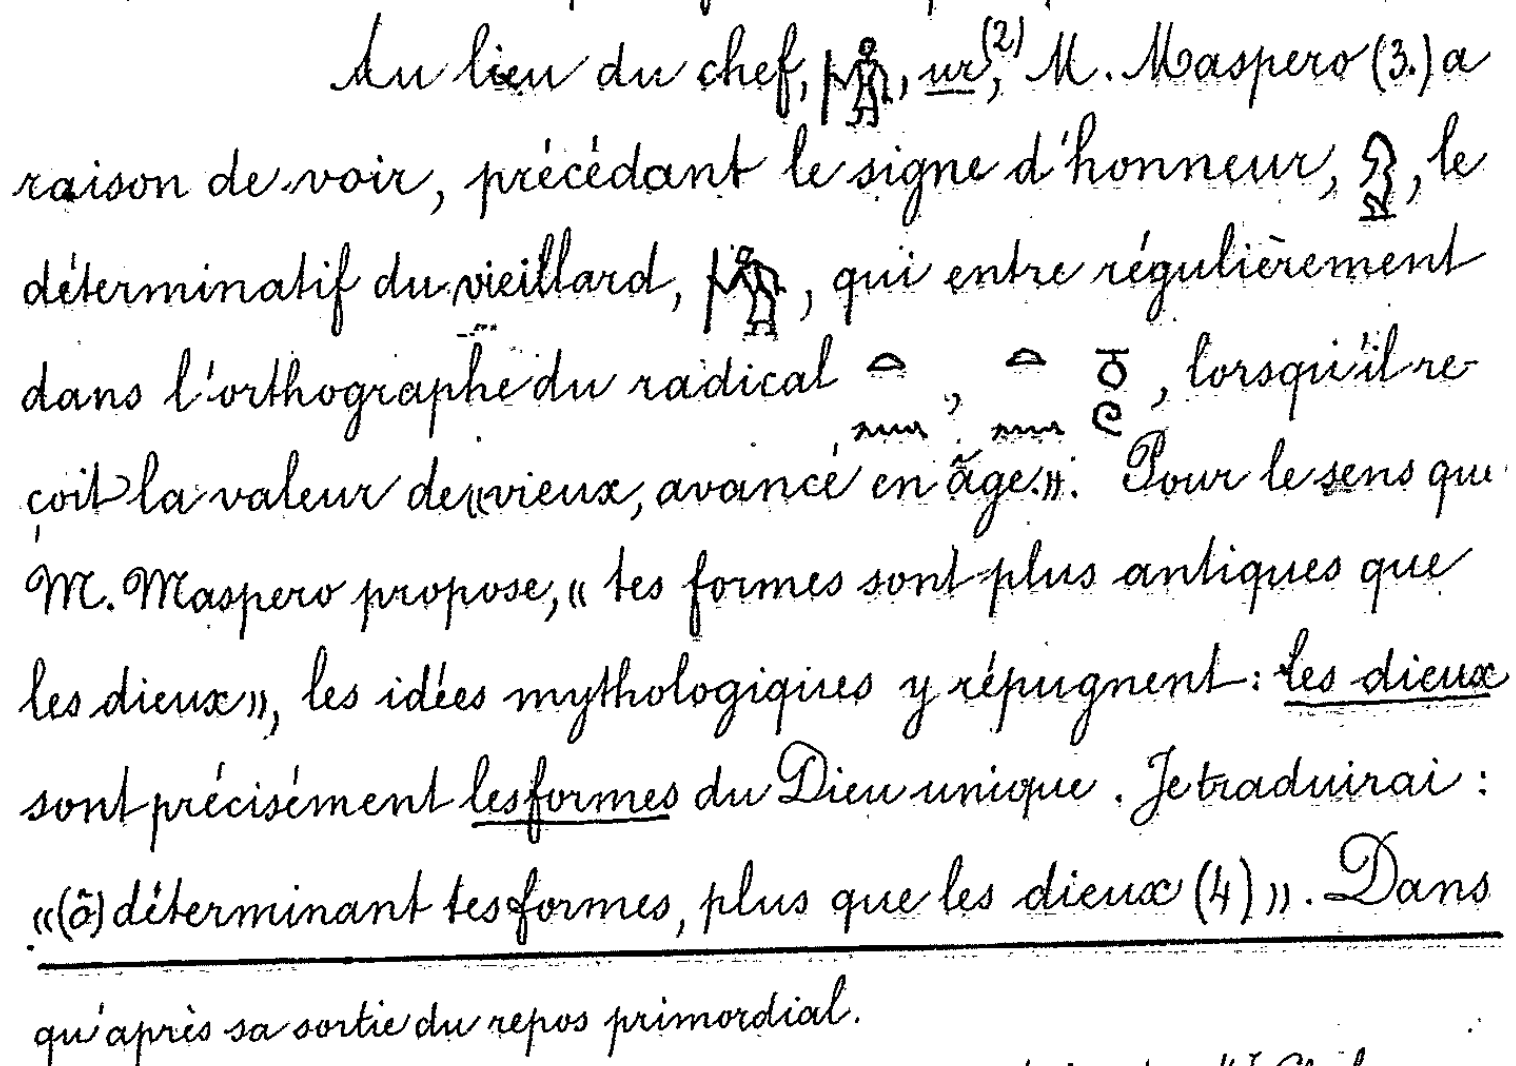 Au lieu du chef, 𓀙, ur,(2) M. Maspero (3.) a
raison de voir, précédant le signe d'honneur, , le
déterminatif du vieillard, 𓀗, qui entre régulièrement
dans l'orthographe du radical 𓏏𓈖, 𓏏𓈖𓏌𓏲, lorsqu'il re-
çoit la valeur de «vieux, avancé en âge.». Pour le sens que
M. Maspero propose, « tes formes sont plus antiques que
les dieux», les idées mythologiques y répugnent: les dieux
sont précisément les formes du Dieu unique. Je traduirai :
«(ô) déterminant tes formes, plus que les dieux (4) ». Dans
qu'après sa sortie du repos primordial.